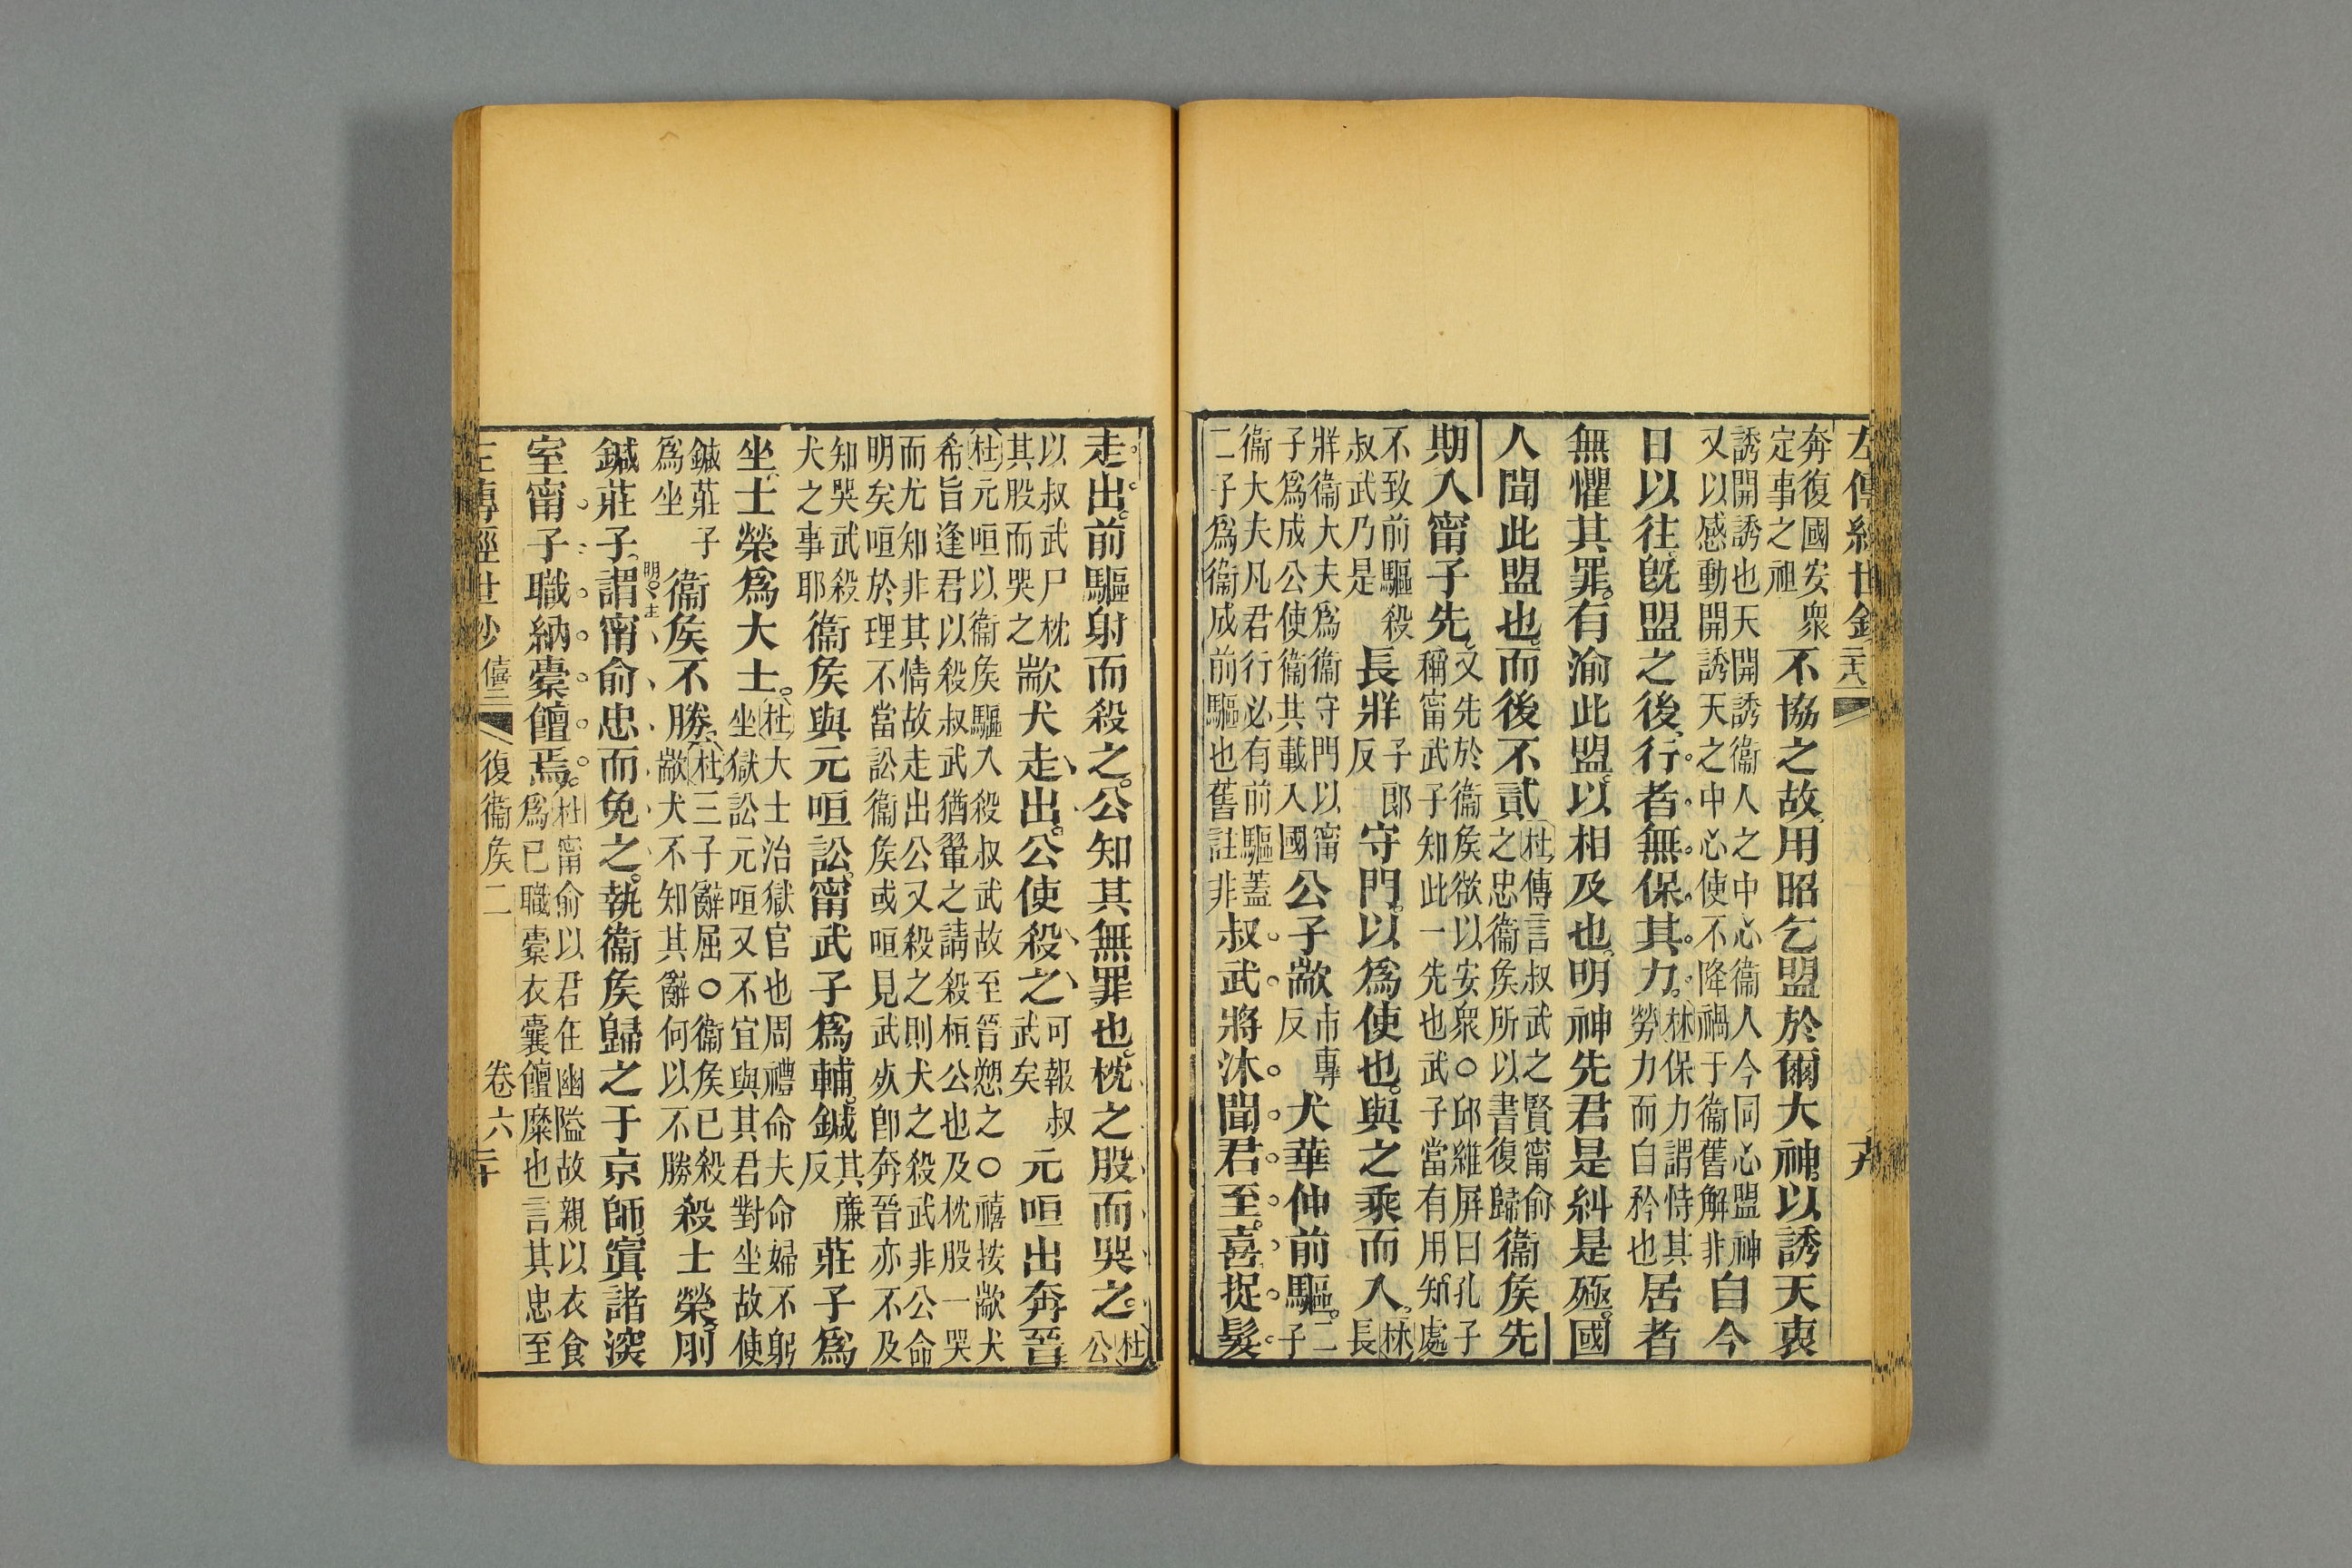 奔復國安衆
定事之祖
不協之故用昭乞盟於爾大神以誘天衷
誘開誘也天開誘衞人之中心衞人今同心盟神
又以感動開誘天之中心使不降禍于衞舊解非
自今
日以往旣盟之後行者無保其力
林保力謂恃其
勞力而自矜也
居者
無懼其罪有渝此盟以相及也明神先君是糾是殛國
人聞此盟也而後不貳
杜傳言叔武之賢甯俞
之忠衞侯所以書復歸
衞侯先
期入甯子先
又先於衞侯欲以安衆○邱維屏曰孔子
稱甯武子知此一先也武子當有用知處
不致前驅殺
叔武乃是
長牂
子郎
反
守門以爲使也與之乘而入
林
長
牂衞大夫爲衞守門以甯
子爲成公使衞共載入國
公子歂
市專
反
犬華仲前驅
二
子
衞大夫凡君行必有前驅蓋
二子爲衞成前驅也舊註非
叔武將沐聞君至喜捉髮
走出前驅射而殺之公知其無罪也枕之股而哭之
杜
公
以叔武尸枕
其股而哭之
歂犬走出公使殺之
可報叔
武矣
元咺出奔晉
杜元咺以衞侯驅入殺叔武故至晉愬之○禧按歂犬
希旨逢君以殺叔武猶翬之請殺桓公也及枕股一哭
而尤知非其情故走出公又殺之則犬之殺武非公命
明矣咺於理不當訟衞侯或咺見武死卽奔晉亦不及
知哭武殺
犬之事耶
衞侯與元咺訟甯武子爲輔鍼
其廉
反
莊子爲
坐士榮爲大士
杜大士治獄官也周禮命夫命婦不躬
坐獄訟元咺又不宜與其君對坐故使
鍼莊子
爲坐
衞侯不勝
杜三子辭屈○衞侯已殺
歂犬不知其辭何以不勝
殺士榮刖
鍼莊子謂甯俞忠而免之執衞侯歸之于京師寘諸深
室甯子職納橐饘焉
杜甯俞以君在幽隘故親以衣食
爲已職橐衣囊饘糜也言其忠至
復衞侯二
卷六